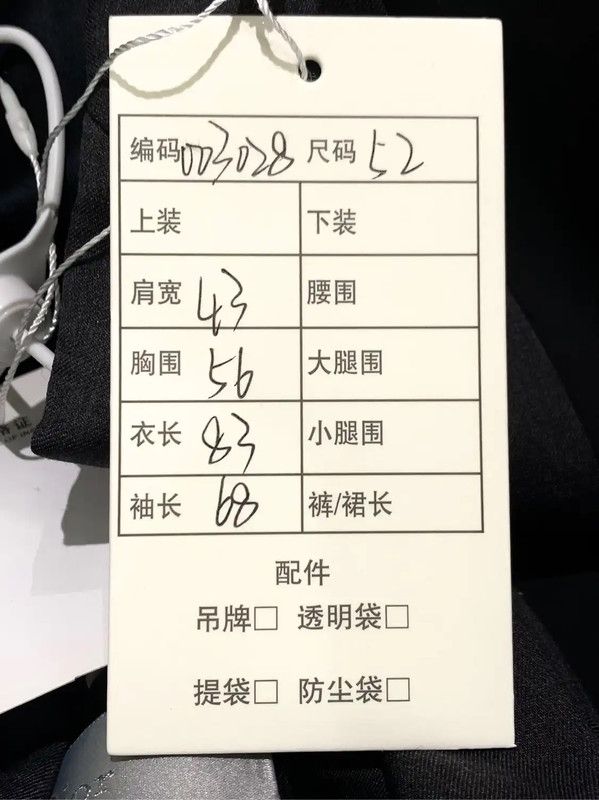 编码003028 尺码 52
上装 下装
肩宽 43 腰围
胸围 56 大腿围
衣长 83 小腿围
袖长 68 裤/裙长
配件
吊牌□ 透明袋□
提袋□ 防尘袋□